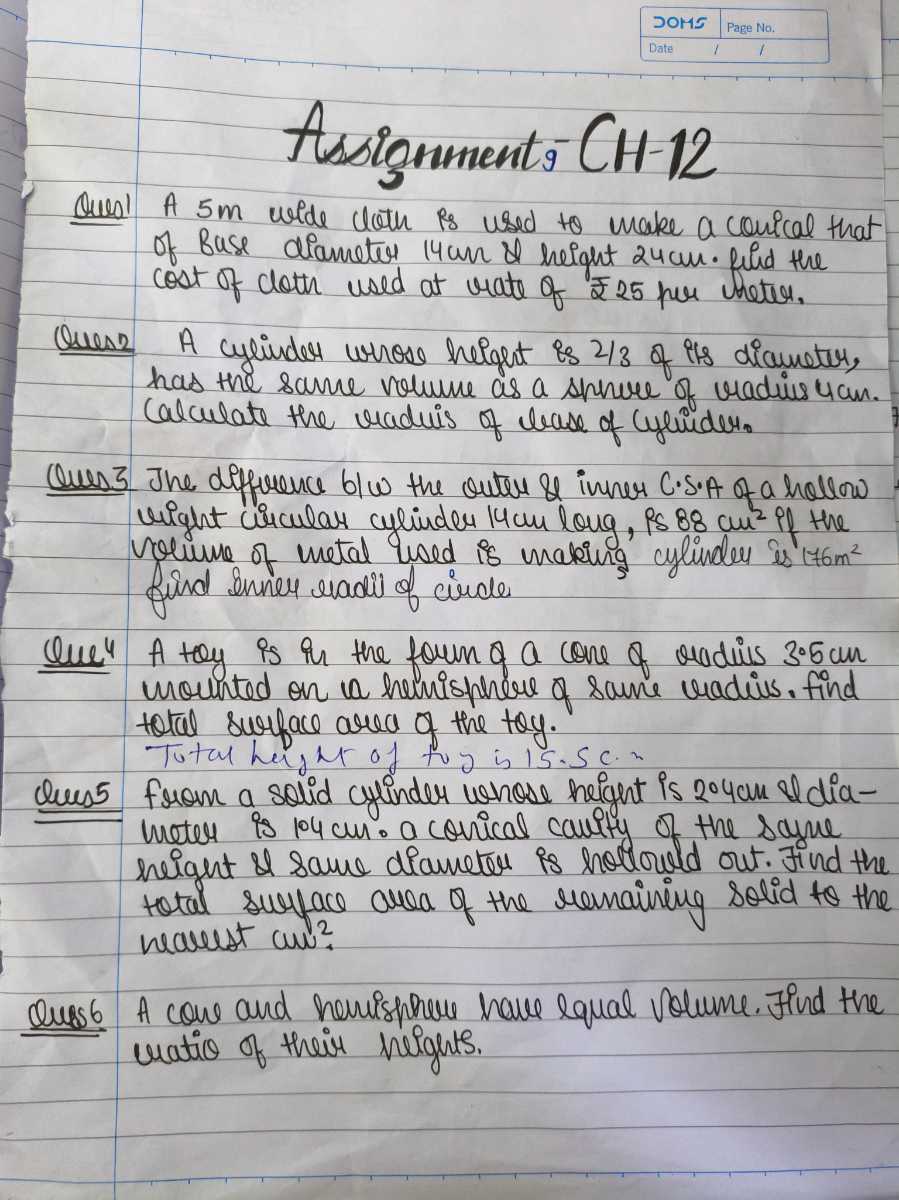 DOMS Page No.
Date / /
Assignment:- CH-12
Ques1 A 5m wide cloth is used to make a conical that
of Base diameter 14cm & height 24cm. find the
cost of cloth used at rate of ₹25 per meter.
Ques2 A cylinder whose height is 2/3 of its diameter,
has the same volume as a sphere of radius 4cm.
Calculate the radius of base of Cylinder.
Ques3 The difference b/w the outer & inner C.S.A of a hollow
right circular cylinder 14cm long, is 88 cm² If the
volume of metal used is making cylinder is 176m²
find inner radii of circle
Que4 A toy is in the form of a cone of radius 3.5cm
mounted on a hemisphere of same radius. find
total surface area of the toy.
Total height of toy is 15.5c.m
Ques5 from a solid cylinder whose height is 2.4cm & dia-
meter is 1.4 cm. a conical cavity of the same
height & same diameter is hollowed out. Find the
total surface area of the remaining solid to the
nearest cm².
Ques6 A cone and hemisphere have equal Volume. Find the
ratio of their heights.